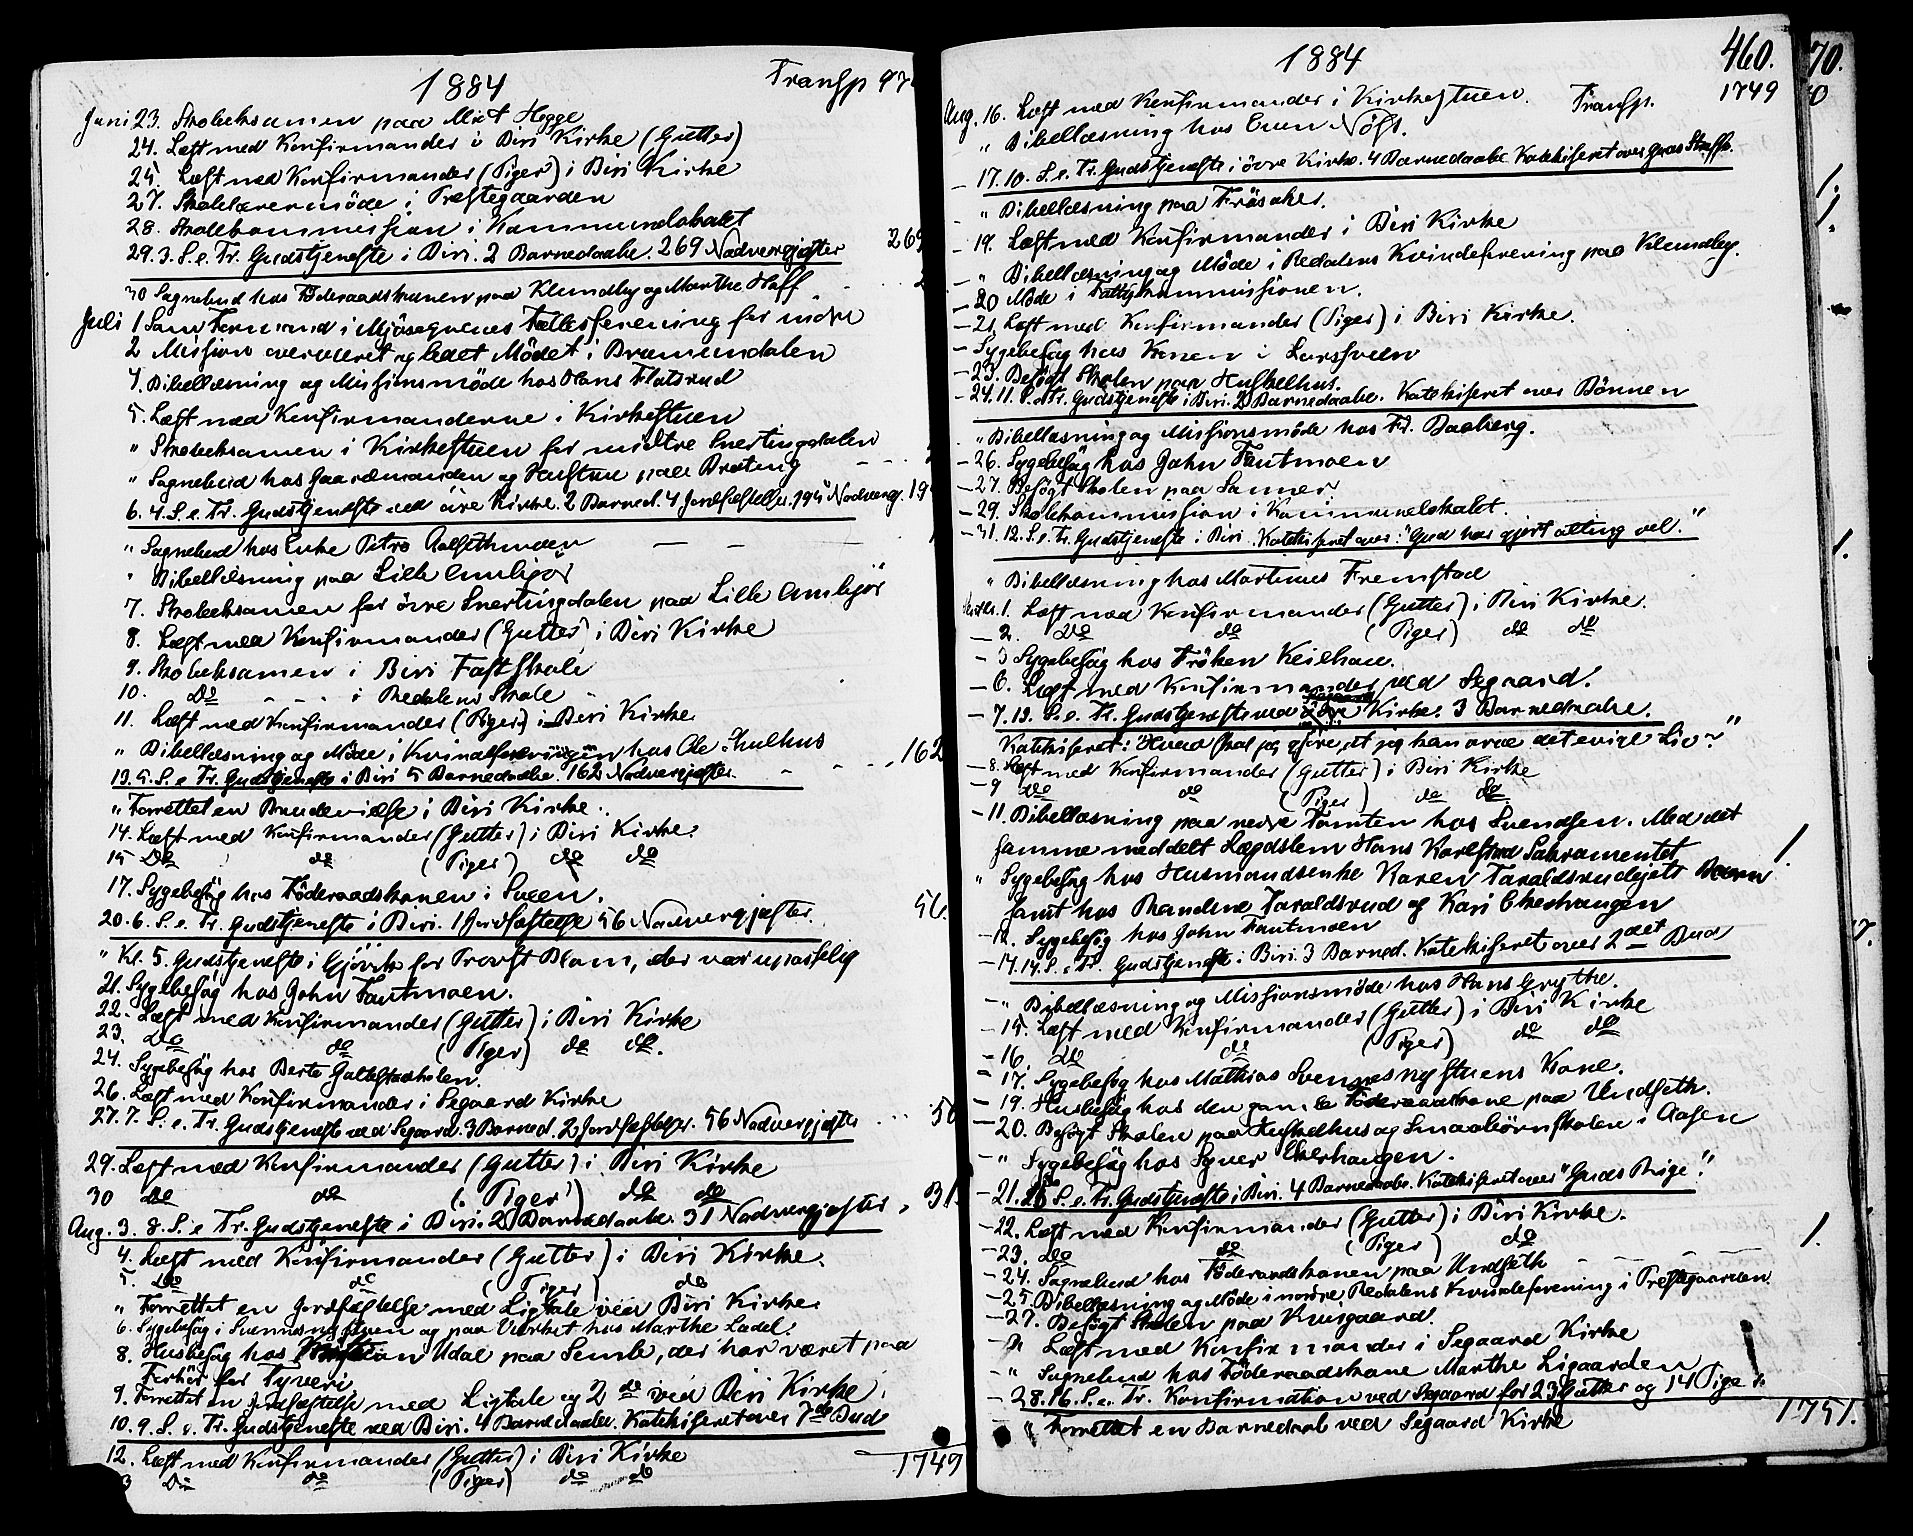 1884
Transp 97
Juni 23. Skoleeksamen paa Hegge
24. Læst med Konfirmander i Biri Kirke (Gutter)
25. Læst med Konfirmander (Piger) i Biri Kirke
27. Skolelærermöde i Præstegaarden
28. Skolekommission i Kommunelokalet
29. 3. S. e. Tr. Gudstjeneste i Biri. 2 Barnedaabe. 269 Nadvergjæster 269
30 Sognebud hos Föderaadskonen paa Klundby og Marthe Hoff
Juli 1 Som Formand i Mjösegnenes Fællesforening for indre
2 Mission overværet og ledet Mödet i Brumunddalen
4. Bibellæsning og Missionsmöde hos Hans Flatsrud
5. Læst med Konfirmanderne i Kirkestuen
" Skoleeksamen i Kirkestuen for midtre Snertingdalen
" Sognebud hos Gaardmanden og Hustru paa Brateng
6. 4. S. e. Tr. Gudstjeneste ved övre Kirke. 2 Barned. 4 Jordfæstelser. 195 Nadverg. 19
" Sognebud hos Enke Petra
" Bibellæsning paa Lille Amligör
7. Skoleeksamen for övre Snertingdalen paa Lille Amligör
8. Læst med Konfirmander (Gutter) i Biri Kirke
9. Skoleeksamen i Biri Fastskole
10. Do - - i Redalens Skole
11. Læst med Konfirmander (Piger) i Biri Kirke
" Bibellæsning og Möde i Kvindeforeningen hos Ole Skulhus
13. 5. S. e. Tr. Gudstjeneste i Biri 5 Barnedaabe. 162 Nadvergjæster. 162
" Forrettet en Brudevielse i Biri Kirke.
14. Læst med Konfirmander (Gutter) i Biri Kirke.
15 Do do (Piger) do do
17. Sygebesög hos Föderaadskonen i Sveen.
20. 6. S. e. Tr. Gudstjeneste i Biri. 1 Jordfæstelse 56 Nadvergjæster. 56
" Kl. 5. Gudstjeneste i Gjövik for Provst Blom, der var upasselig
21. Sygebesög hos John Tantmoen.
22. Læst med Konfirmander (Gutter) i Biri Kirke
23. Do do (Piger) do do.
24. Sygebesög hos Berte Galtestadholen.
26. Læst med Konfirmander i Segaard Kirke
27. 7. S. e. Tr. Gudstjeneste ved Segaard. 3 Barned. 2 Jordfæstelser. 56 Nadvergjæster 56
29. Læst med Konfirmander (Gutter) i Biri Kirke
30 Do do (Piger) do do
Aug. 3. 8. S. e Tr. Gudstjeneste i Biri. 2 Barnedaabe. 31 Nadvergjæster 31.
4. Læst med Konfirmander (Gutter) i Biri Kirke.
5. Do do (Piger) do
" Forrettet en Jordfæstelse med Ligtale ved Biri Kirke.
6. Sygebesög i Svennesnystuen og paa Værket hos Marthe Ladel.
8. Husbesög hos Udal paa Semb, der har været paa
Forhör for Tyveri
9. Forrettet en Jordfæstelse med Ligtale og 2 do ved Biri Kirke.
10. 9. S. e. Tr. Gudstjeneste ved Biri. 4 Barnedaabe. Katekiseret over 7de Bud
12. Læst med Konfirmander (Gutter) i Biri Kirke
3 Do do (Piger) do do
1749
1884
460.
Aug. 16. Læst med Konfirmander i Kirkestuen. Transp. 1749
" Bibellæsning hos Even Nöss.
- 17. 10. S. e. Tr. Gudstjeneste i övre Kirke. 4 Barnedaabe. Katekiseret over Guds Straffe.
" Bibellæsning paa Frösaker.
- 19. Læst med Konfirmander i Biri Kirke
" Bibellæsning og Möde i Redalens Kvindeforening paa Klundby.
- 20 Möde i Fattigkommissionen.
- 21. Læst med Konfirmander (Piger) i Biri Kirke.
- Sygebesög hos Konen i Larssveen
- 23. Besögt Skolen paa Huskelhus.
- 24. 11. S. e. Tr. Gudstjeneste i Biri. 2 Barnedaabe. Katekiseret over Bönnen
" Bibellæsning og Missionsmöde hos Fr. Dasberg.
- 26. Sygebesög hos John Tantmoen
- 27. Besögt Skolen paa Sanner.
- 29. Skolekommission i Kommunelokalet.
- 31. 12. S. e. Tr. Gudstjeneste i Biri. Katekiseret over: "Gud har gjort alting vel."
" Bibellæsning hos Martinus Fremstad
1. Læst med Konfirmander (Gutter) i Biri Kirke.
- 2. Do do (Piger) do do
- 3 Sygebesög hos Fröken Keilhau.
- 6. Læst med Konfirmander ved Segaard.
- 7. 13. S. e. Tr. Gudstjeneste ved Segaard Kirke. 3 Barnedaabe.
Katekiseret: "Hvad skal jeg gjöre, at jeg kan arve det evige Liv?"
- 8. Læst med Konfirmander (Gutter) i Biri Kirke
- 9 Do do (Piger) do do.
- 11. Bibellæsning paa nedre Tomten hos Svendsen. Med det
samme meddelt Lægdslem Hans Karlstad Sakramentet 1.
" Sygebesög hos Husmandsenke Karen Taraldsrudejets Barn
samt hos Randine Taraldsrud og Kari Ekerhaugen
- 12. Sygebesög hos John Tantmoen
- 14. 14. S. e. Tr. Gudstjeneste i Biri. 3 Barned. Katekiseret over 2det Bud
- " Bibellæsning og Missionsmöde hos Hans Grythe.
- 15. Læst med Konfirmander (Gutter) i Biri Kirke
- 16. Do do (Piger) do do
- 17. Sygebesög hos Mathias Svennesnystuens Kone.
- 19. Husbesög hos den gamle Föderaadskone paa Undseth.
- 20. Besögt Skolen paa Huskelhus og Smaabörnskolen i Aasen
- " Sygebesög hos Syver Ekerhaugen.
- 21. 15 S. e. Tr. Gudstjeneste i Biri. 4 Barnedaabe. Katekiseret over "Guds Rige".
- 22. Læst med Konfirmander (Gutter) i Biri Kirke.
- 23. Do do (Piger) do
- 24. Sognebud hos Föderaadskonen paa Undseth 1.
- 25. Bibellæsning og Möde i nordre Redalens Kvindeforening i Præstegaarden
- 27. Besögt Skolen paa
- " Læst med Konfirmander i Segaard Kirke
" Sognebud hos Föderaadskone Marthe Ligaarden 1
- 28. 16. S. e. Tr. Konfirmation ved Segaard for 23 Gutter og 14 Piger.
" Forrettet en Barnedaab ved Segaard Kirke
1751.
70.
0
1.
1.
1.
7.